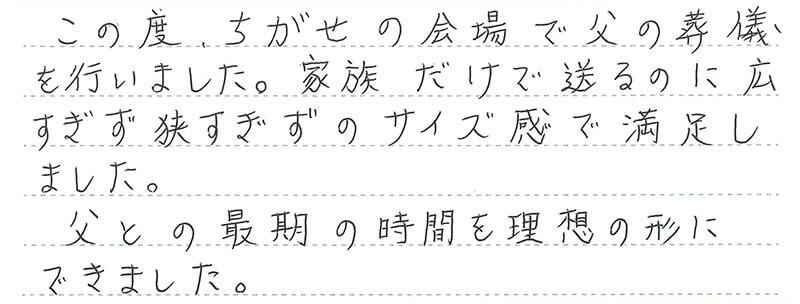 この度、ちがせの会場で父の葬儀
を行いました。家族だけで送るのに広
すぎず狭すぎずのサイズ感で満足し
ました。
父との最期の時間を理想の形に
できました。